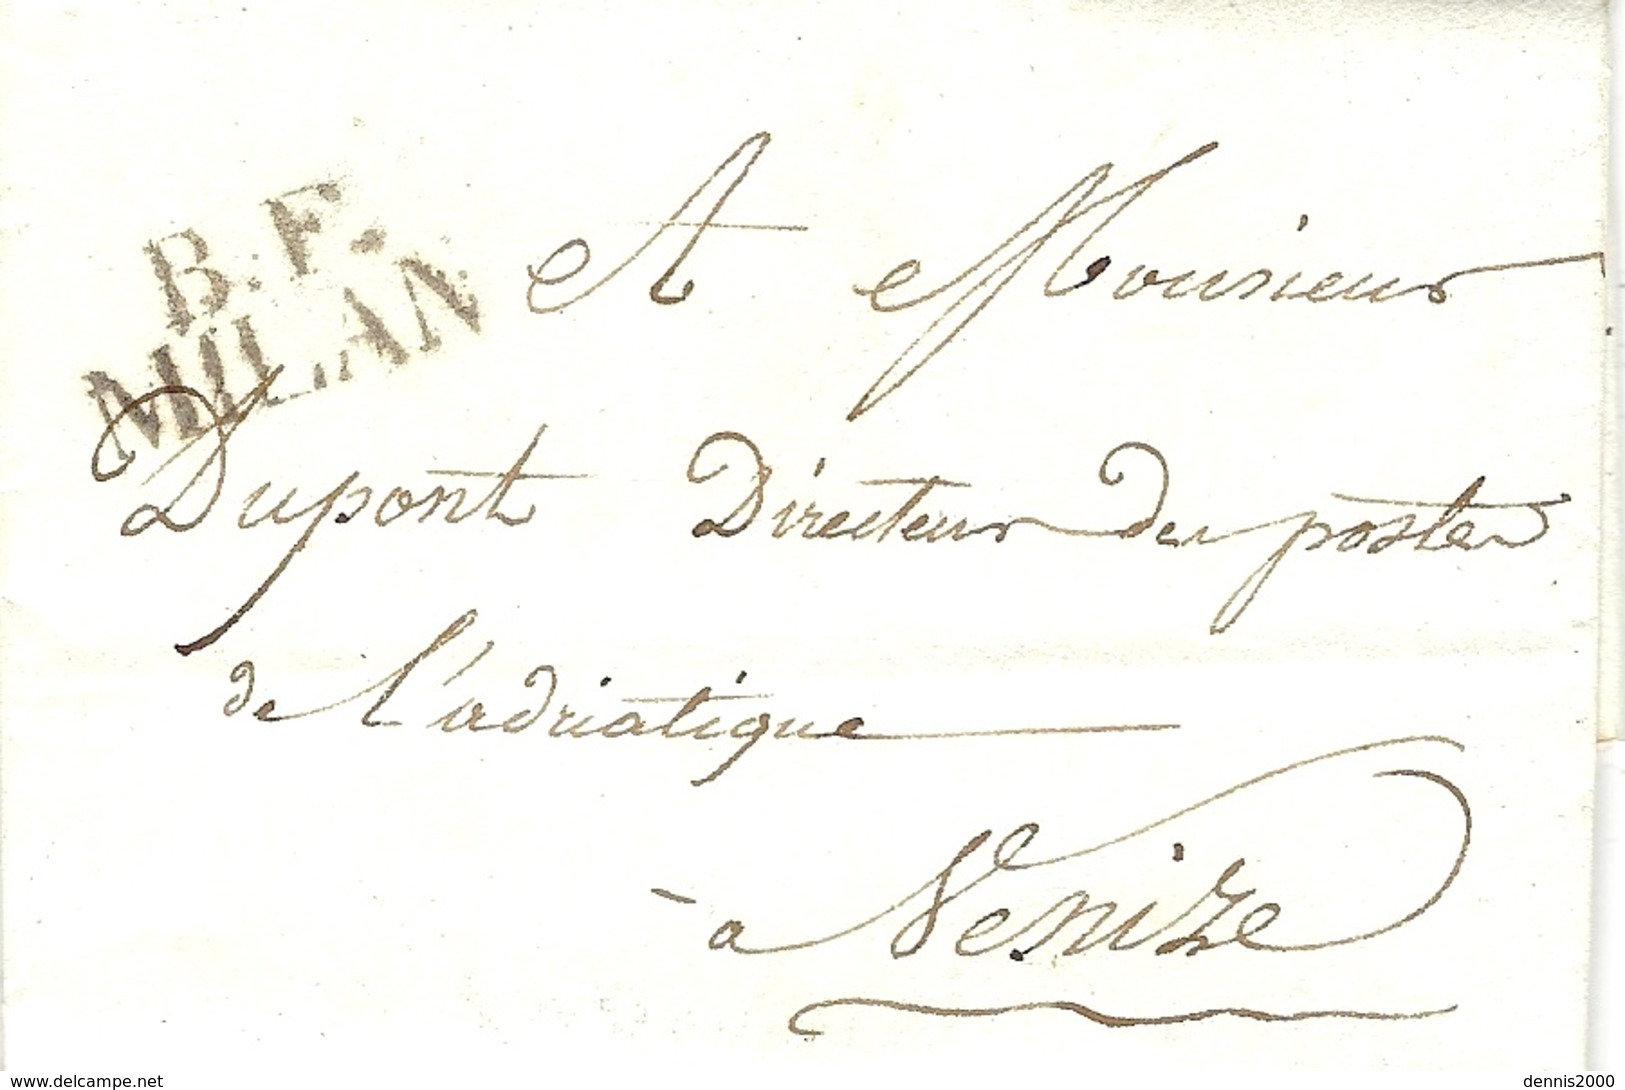 B. F.
MILAN
A Monsieur
Dupont Directeur des postes
de l'adriatique
à Venize
www.delcampe.net
dennis2000